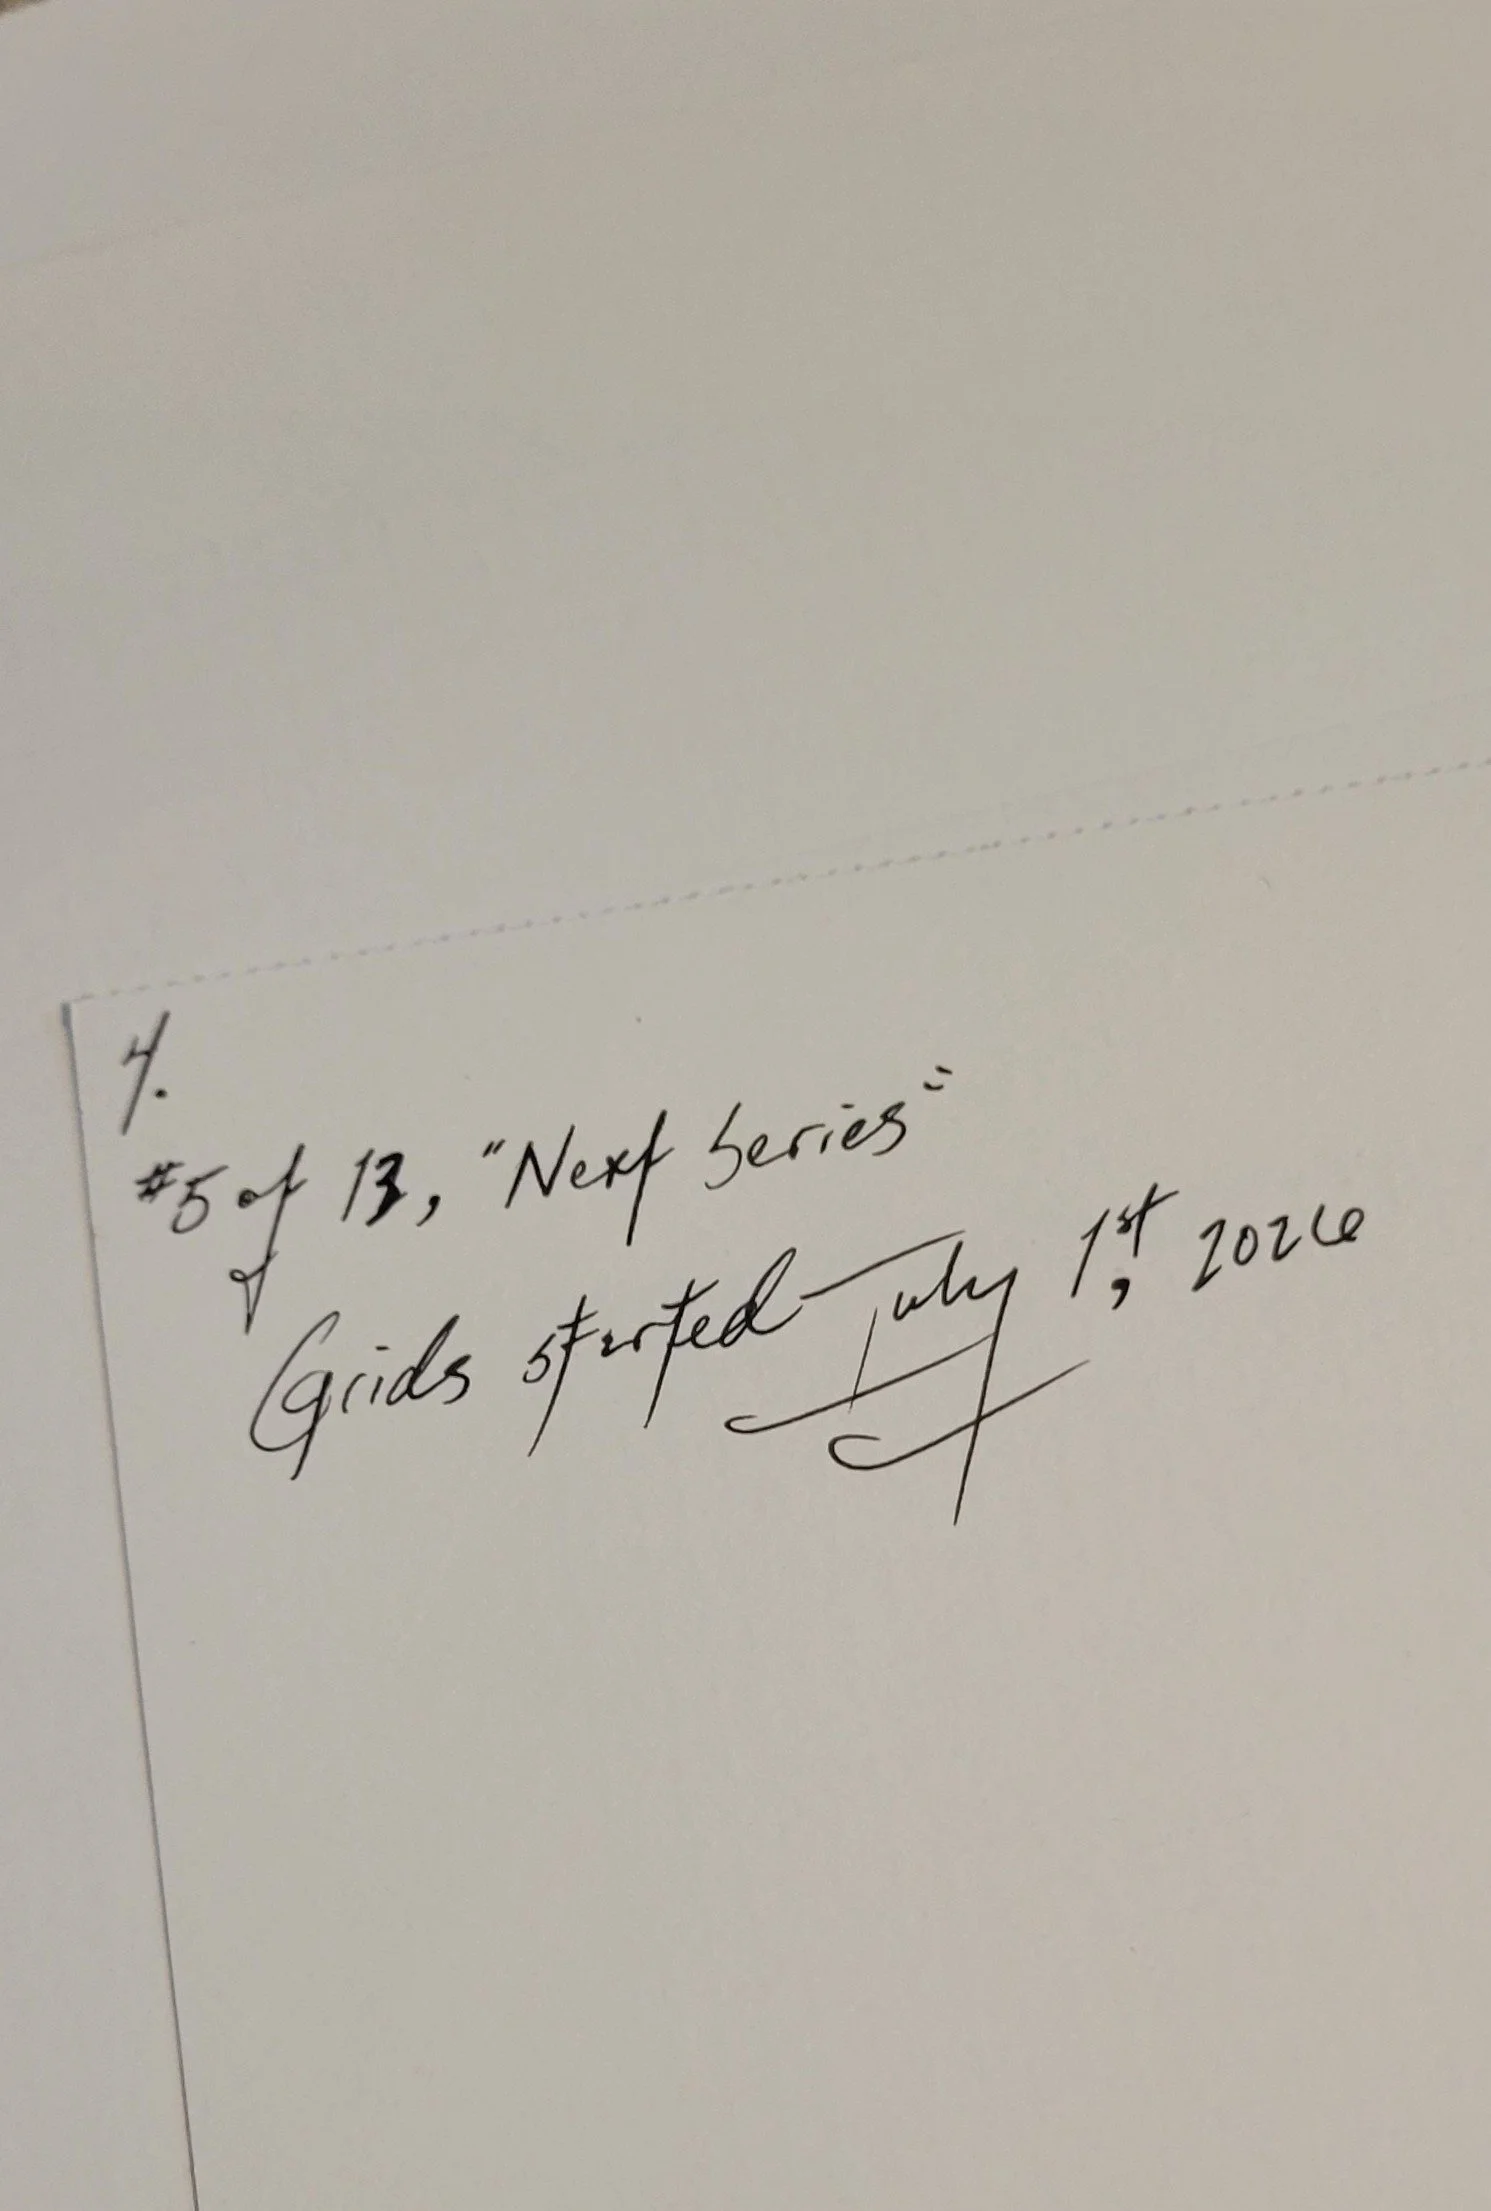 4.
#5 of 13, "Next Series"
of
Grids started July 1st, 2026